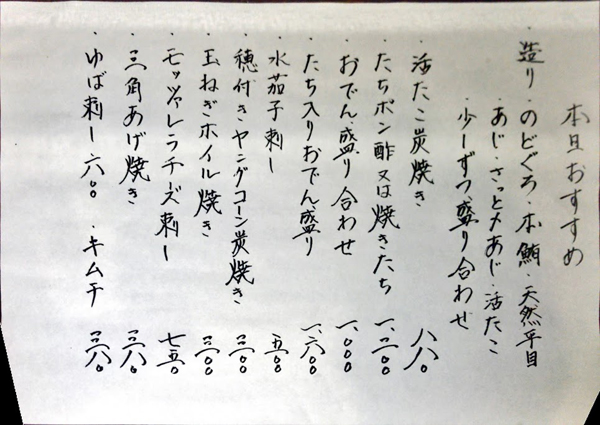 本日おすすめ
・造り・のどぐろ・本鮪・天然平目
・あじ・さっと〆あじ・活たこ
・少しずつ盛り合わせ
・活たこ炭焼き 八八〇
・たちポン酢又は焼きたち 一、二〇〇
・おでん盛り合わせ 一、〇〇〇
・たち入りおでん盛り 一、六〇〇
・水茄子刺し 五〇〇
・穂付きヤングコーン炭焼き 三〇〇
・玉ねぎホイル焼き 三〇〇
・モッツァレラチーズ刺し 七五〇
・三角あげ焼き 三八〇
・ゆば刺し 六〇〇 ・キムチ 三八〇